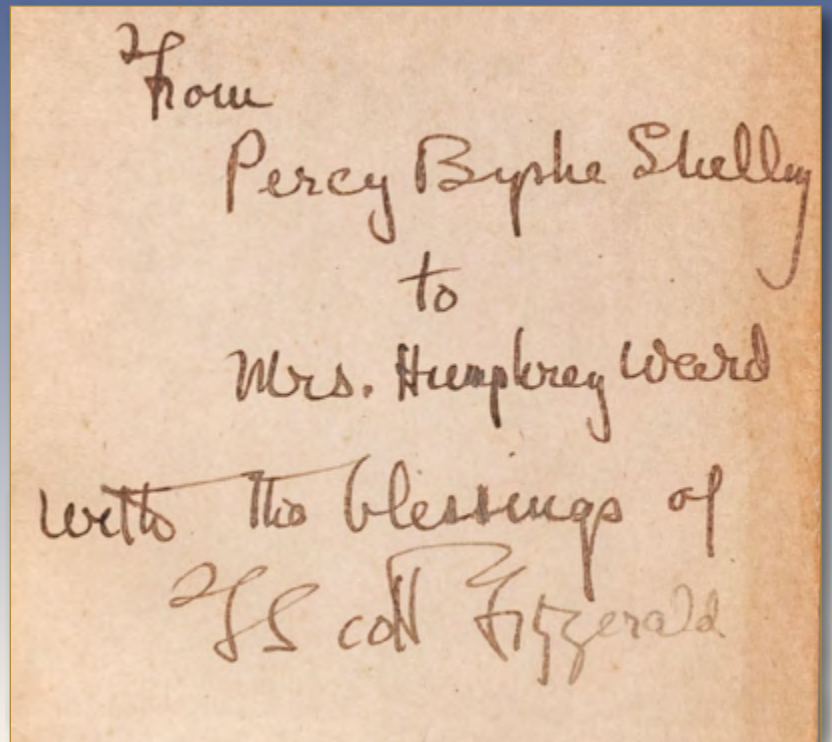 From
Percy Byshe Shelley
to
Mrs. Humphrey Ward
with the blessings of
F Scott Fitzgerald